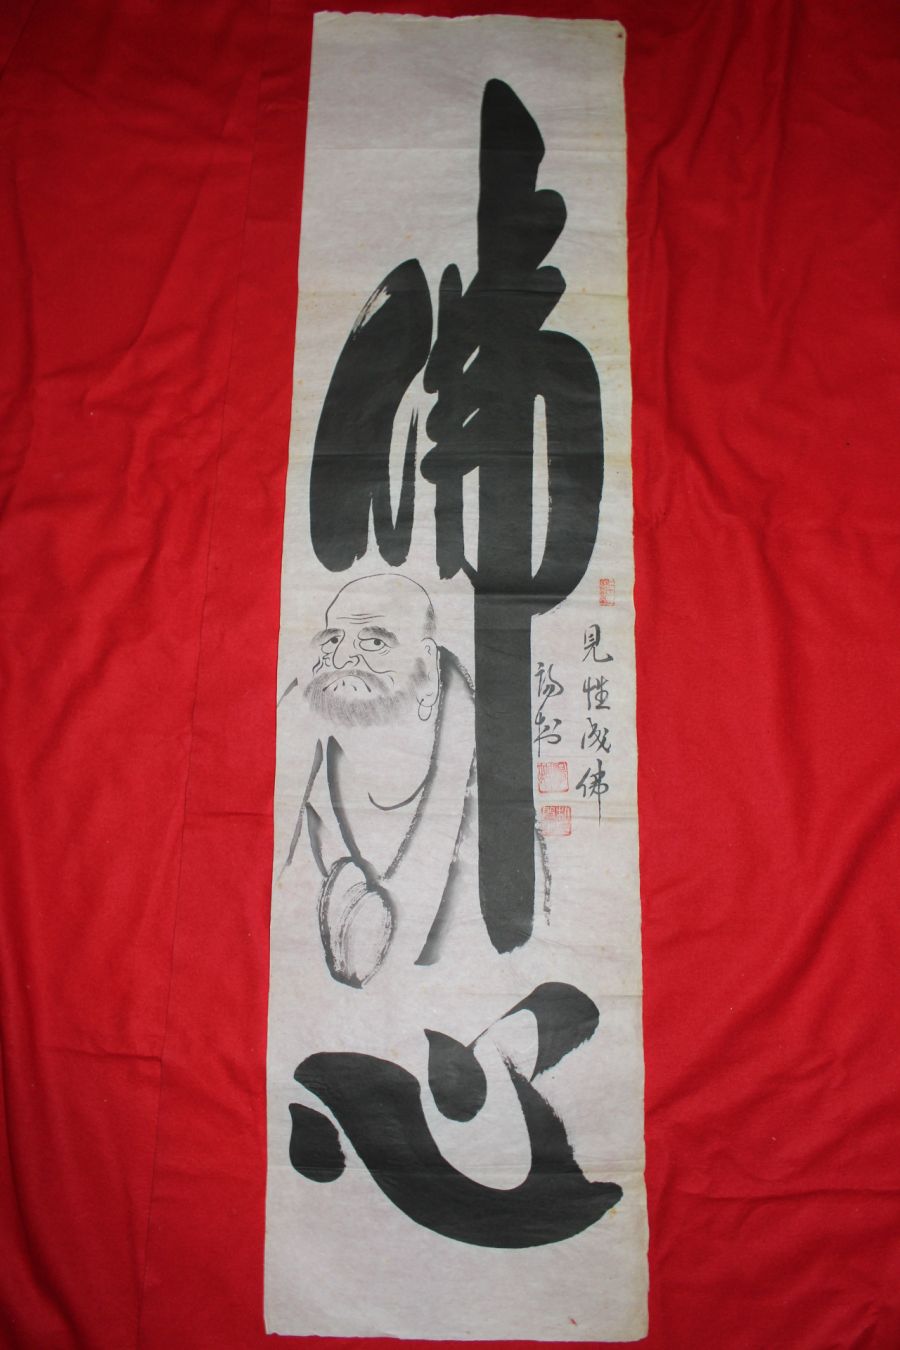 佛心
見性成佛